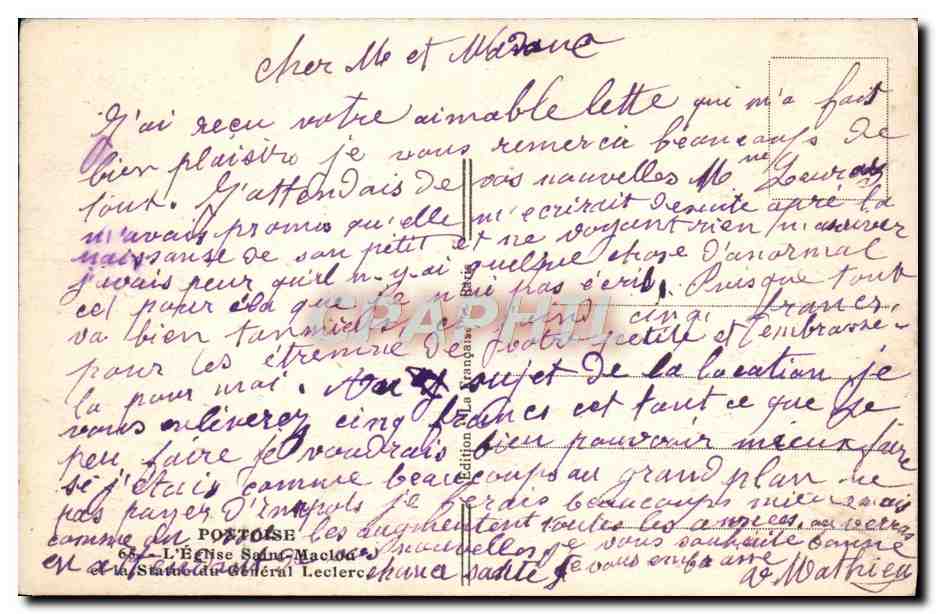 cher M et Madame
J'ai reçu votre aimable lette qui m'a fait
bien plaisir, je vous remerci beaucoups de
tout. J'attendais de vos nouvelles Mme
m'avais promis qu'elle m'ecrirait desuite apré la
naissance de son petit et ne voyant rien m'arriver
j'avais peur qu'il n-y-ai quelque chose d'anormal
cet pour cela que je n'ai pas écrit. Puisque tout
va bien tanmieux, cinq francs,
pour les étrenne de votre petite et l'embrasse-
la pour moi. Au sujet de la location je
vous enléverez cinq francs cet tout ce que je
peu faire Je voudrais bien pouvoir mieux faire
si j'étais comme beaucoups au grand plan ne
pas payer d'impots je ferais beaucoups mieu mais
comme on les augmentent toutes les années, on verras
en attendant nouvelles, je vous souhaite bonne
chance santé, Je vous embrasse
A Mathieu
PONTOISE
65. - L'Église Saint-Maclou
et la Statue du Général Leclerc
Edition "La Française" - Paris
CPAPHIL